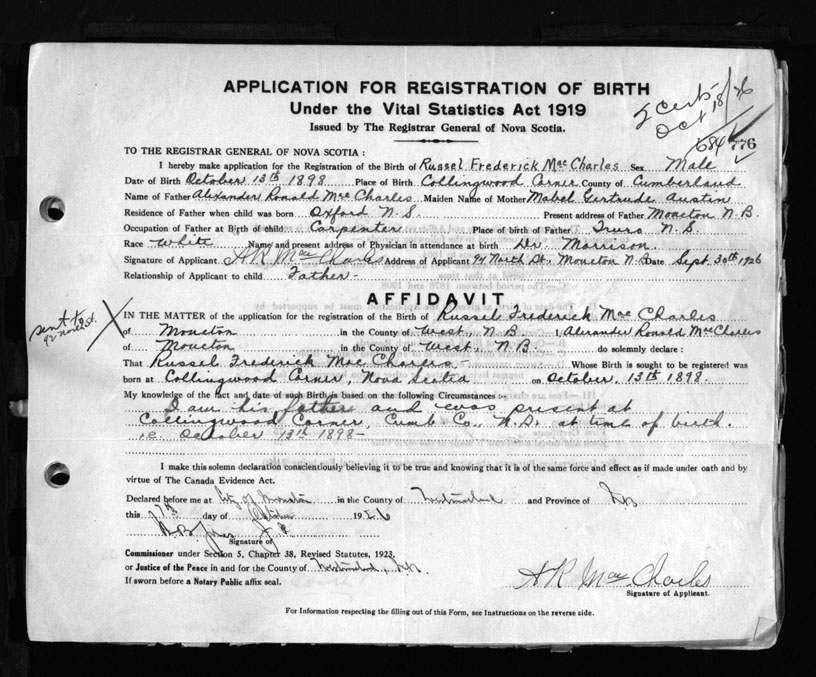 APPLICATION FOR REGISTRATION OF BIRTH
Under the Vital Statistics Act 1919
Issued by The Registrar General of Nova Scotia.
2 Certs
Oct 18/26
684 776
TO THE REGISTRAR GENERAL OF NOVA SCOTIA :
I hereby make application for the Registration of the Birth of Russel Frederick MacCharles Sex Male
Date of Birth October 13th 1898 Place of Birth Collingwood Corner County of Cumberland
Name of Father Alexander Ronald MacCharles Maiden Name of Mother Mabel Gertrude Austin
Residence of Father when child was born Oxford N.S. Present address of Father Moncton N.B.
Occupation of Father at Birth of child Carpenter Place of birth of Father Truro N.S.
Race White Name and present address of Physician in attendance at birth Dr. Morrison.
Signature of Applicant A R MacCharles Address of Applicant 94 North St. Moncton N.B Date Sept. 30th 1926
Relationship of Applicant to child Father -
AFFIDAVIT
sent to
IN THE MATTER of the application for the registration of the Birth of Russel Frederick MacCharles
of Moncton in the County of West, N.B. I, Alexander Ronald MacCharles
of Moncton in the County of West, N.B. do solemnly declare :
That Russel Frederick MacCharles - Whose Birth is sought to be registered was
born at Collingwood Corner, Nova Scotia on October, 13th 1898.
My knowledge of the fact and date of such Birth is based on the following Circumstances :-
I am his father and was present at
Collingwood Corner, Cumb. Co., N.S. at time of birth.
i.e. October 13th 1898 -
I make this solemn declaration conscientiously believing it to be true and knowing that it is of the same force and effect as if made under oath and by
virtue of The Canada Evidence Act.
Declared before me at City of Moncton in the County of Westmorland and Province of NB
this day of October 1926
J.P.
Signature of
Commissioner under Section 5, Chapter 38, Revised Statutes, 1923;
or Justice of the Peace in and for the County of Westmorland, NB
If sworn before a Notary Public affix seal.
A R MacCharles
Signature of Applicant.
For Information respecting the filling out of this Form, see Instructions on the reverse side.